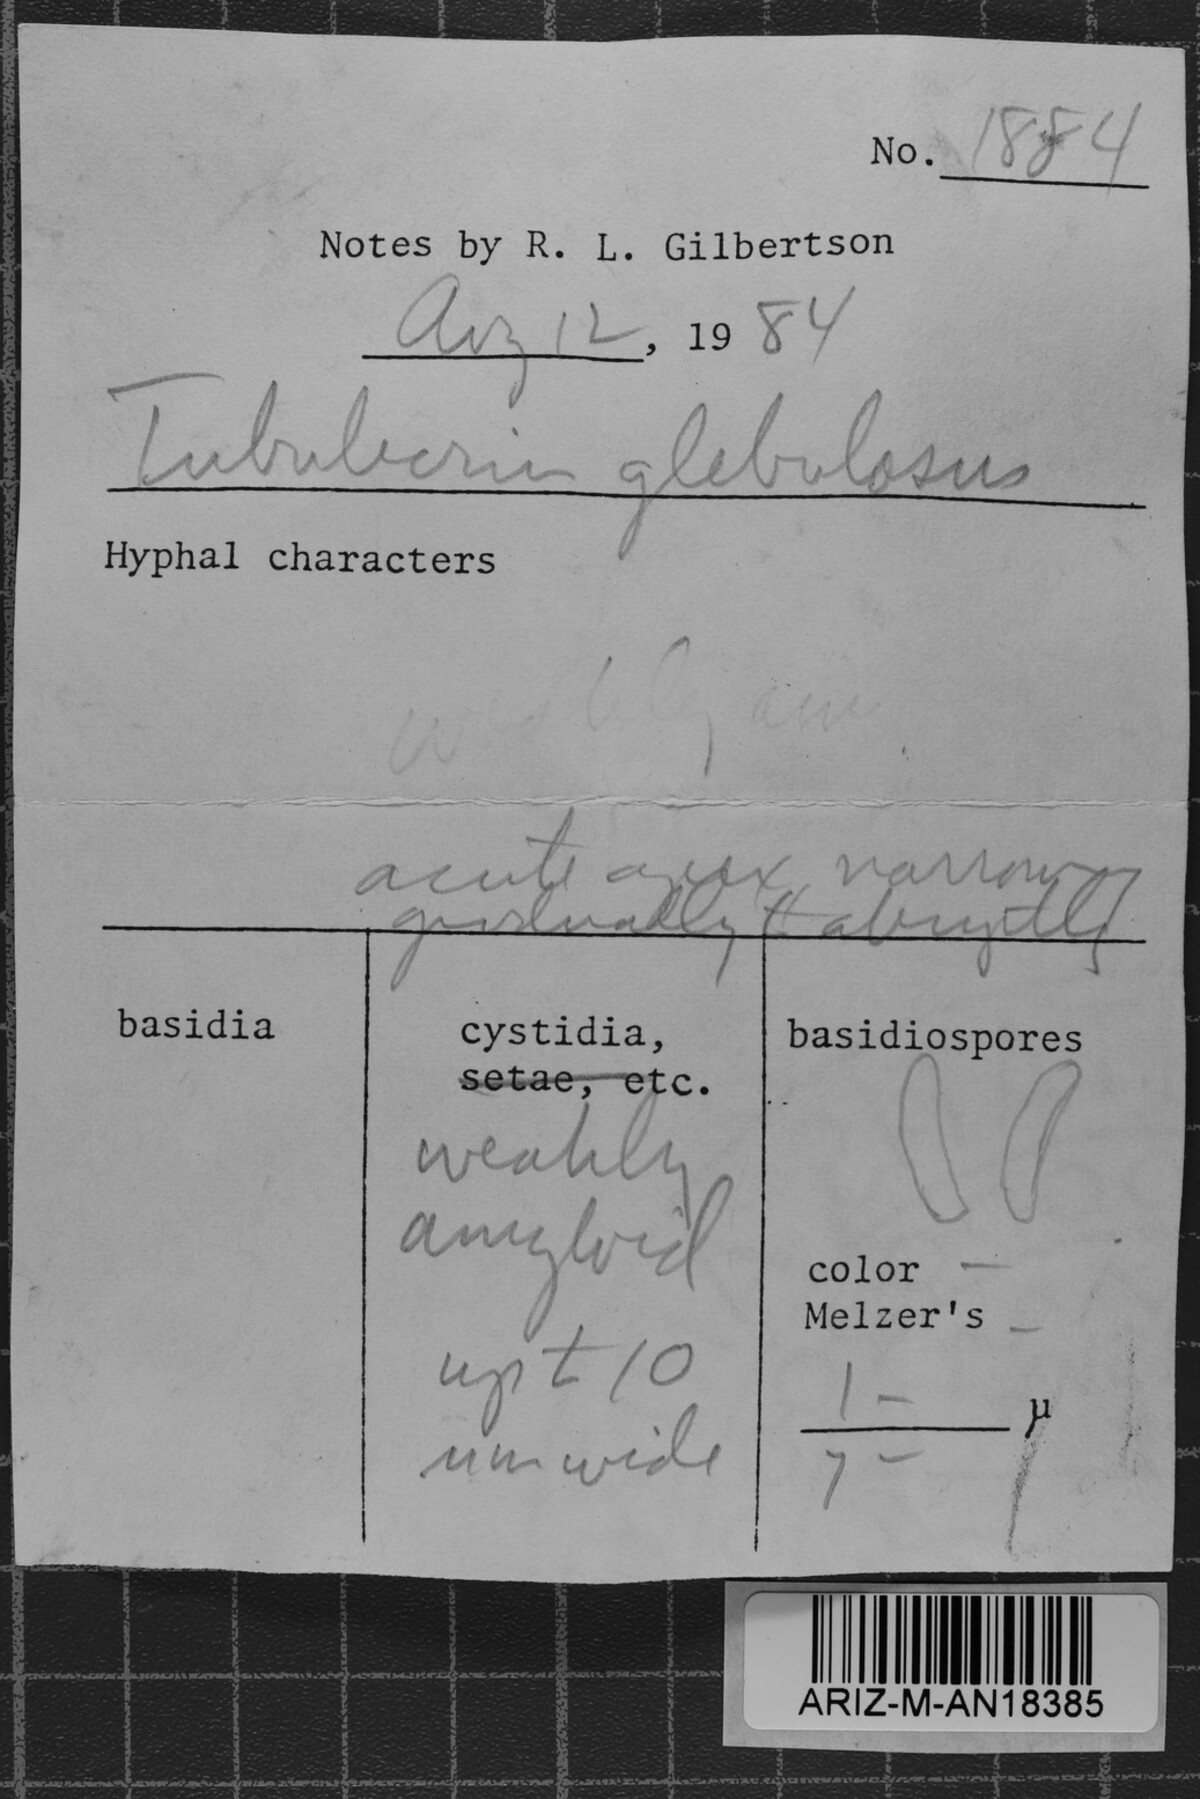 No. 1884
Notes by R. L. Gilbertson
Aug 12, 1984
Tubulicrin glebulosus
Hyphal characters
weakly am
acute apex, narrow
gradually abruptly
basidia
cystidia,
setae, etc.
weakly
amyloid
up to 10
um wide
basidiospores
color —
Melzer's —
1 –
µ
7 –
ARIZ-M-AN18385